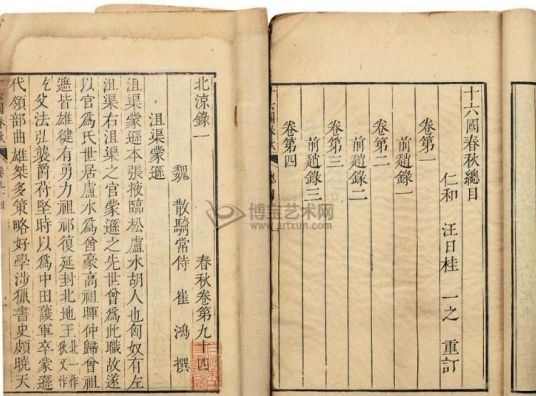 十六國春秋總目
仁和 汪日桂 一之 重訂
卷第一
前趙錄一
卷第二
前趙錄二
卷第三
前趙錄三
卷第四
北涼錄一 春秋卷第九十四
魏 散騎常侍 崔鴻 撰
沮渠蒙遜
沮渠蒙遜本張掖臨松盧水胡人也匈奴有左
沮渠右沮渠之官蒙遜之先世曾爲此職故遂
以官爲氏世居盧水爲酋豪高祖暉仲歸曾祖
遮皆雄健有勇力祖祁復延封北地王北一作狄又作
父法弘襲爵苻堅時以爲中田護軍卒蒙遜
代領部曲雄桀多策略好學涉獵書史頗曉天
博宝艺术网
www.artxun.com